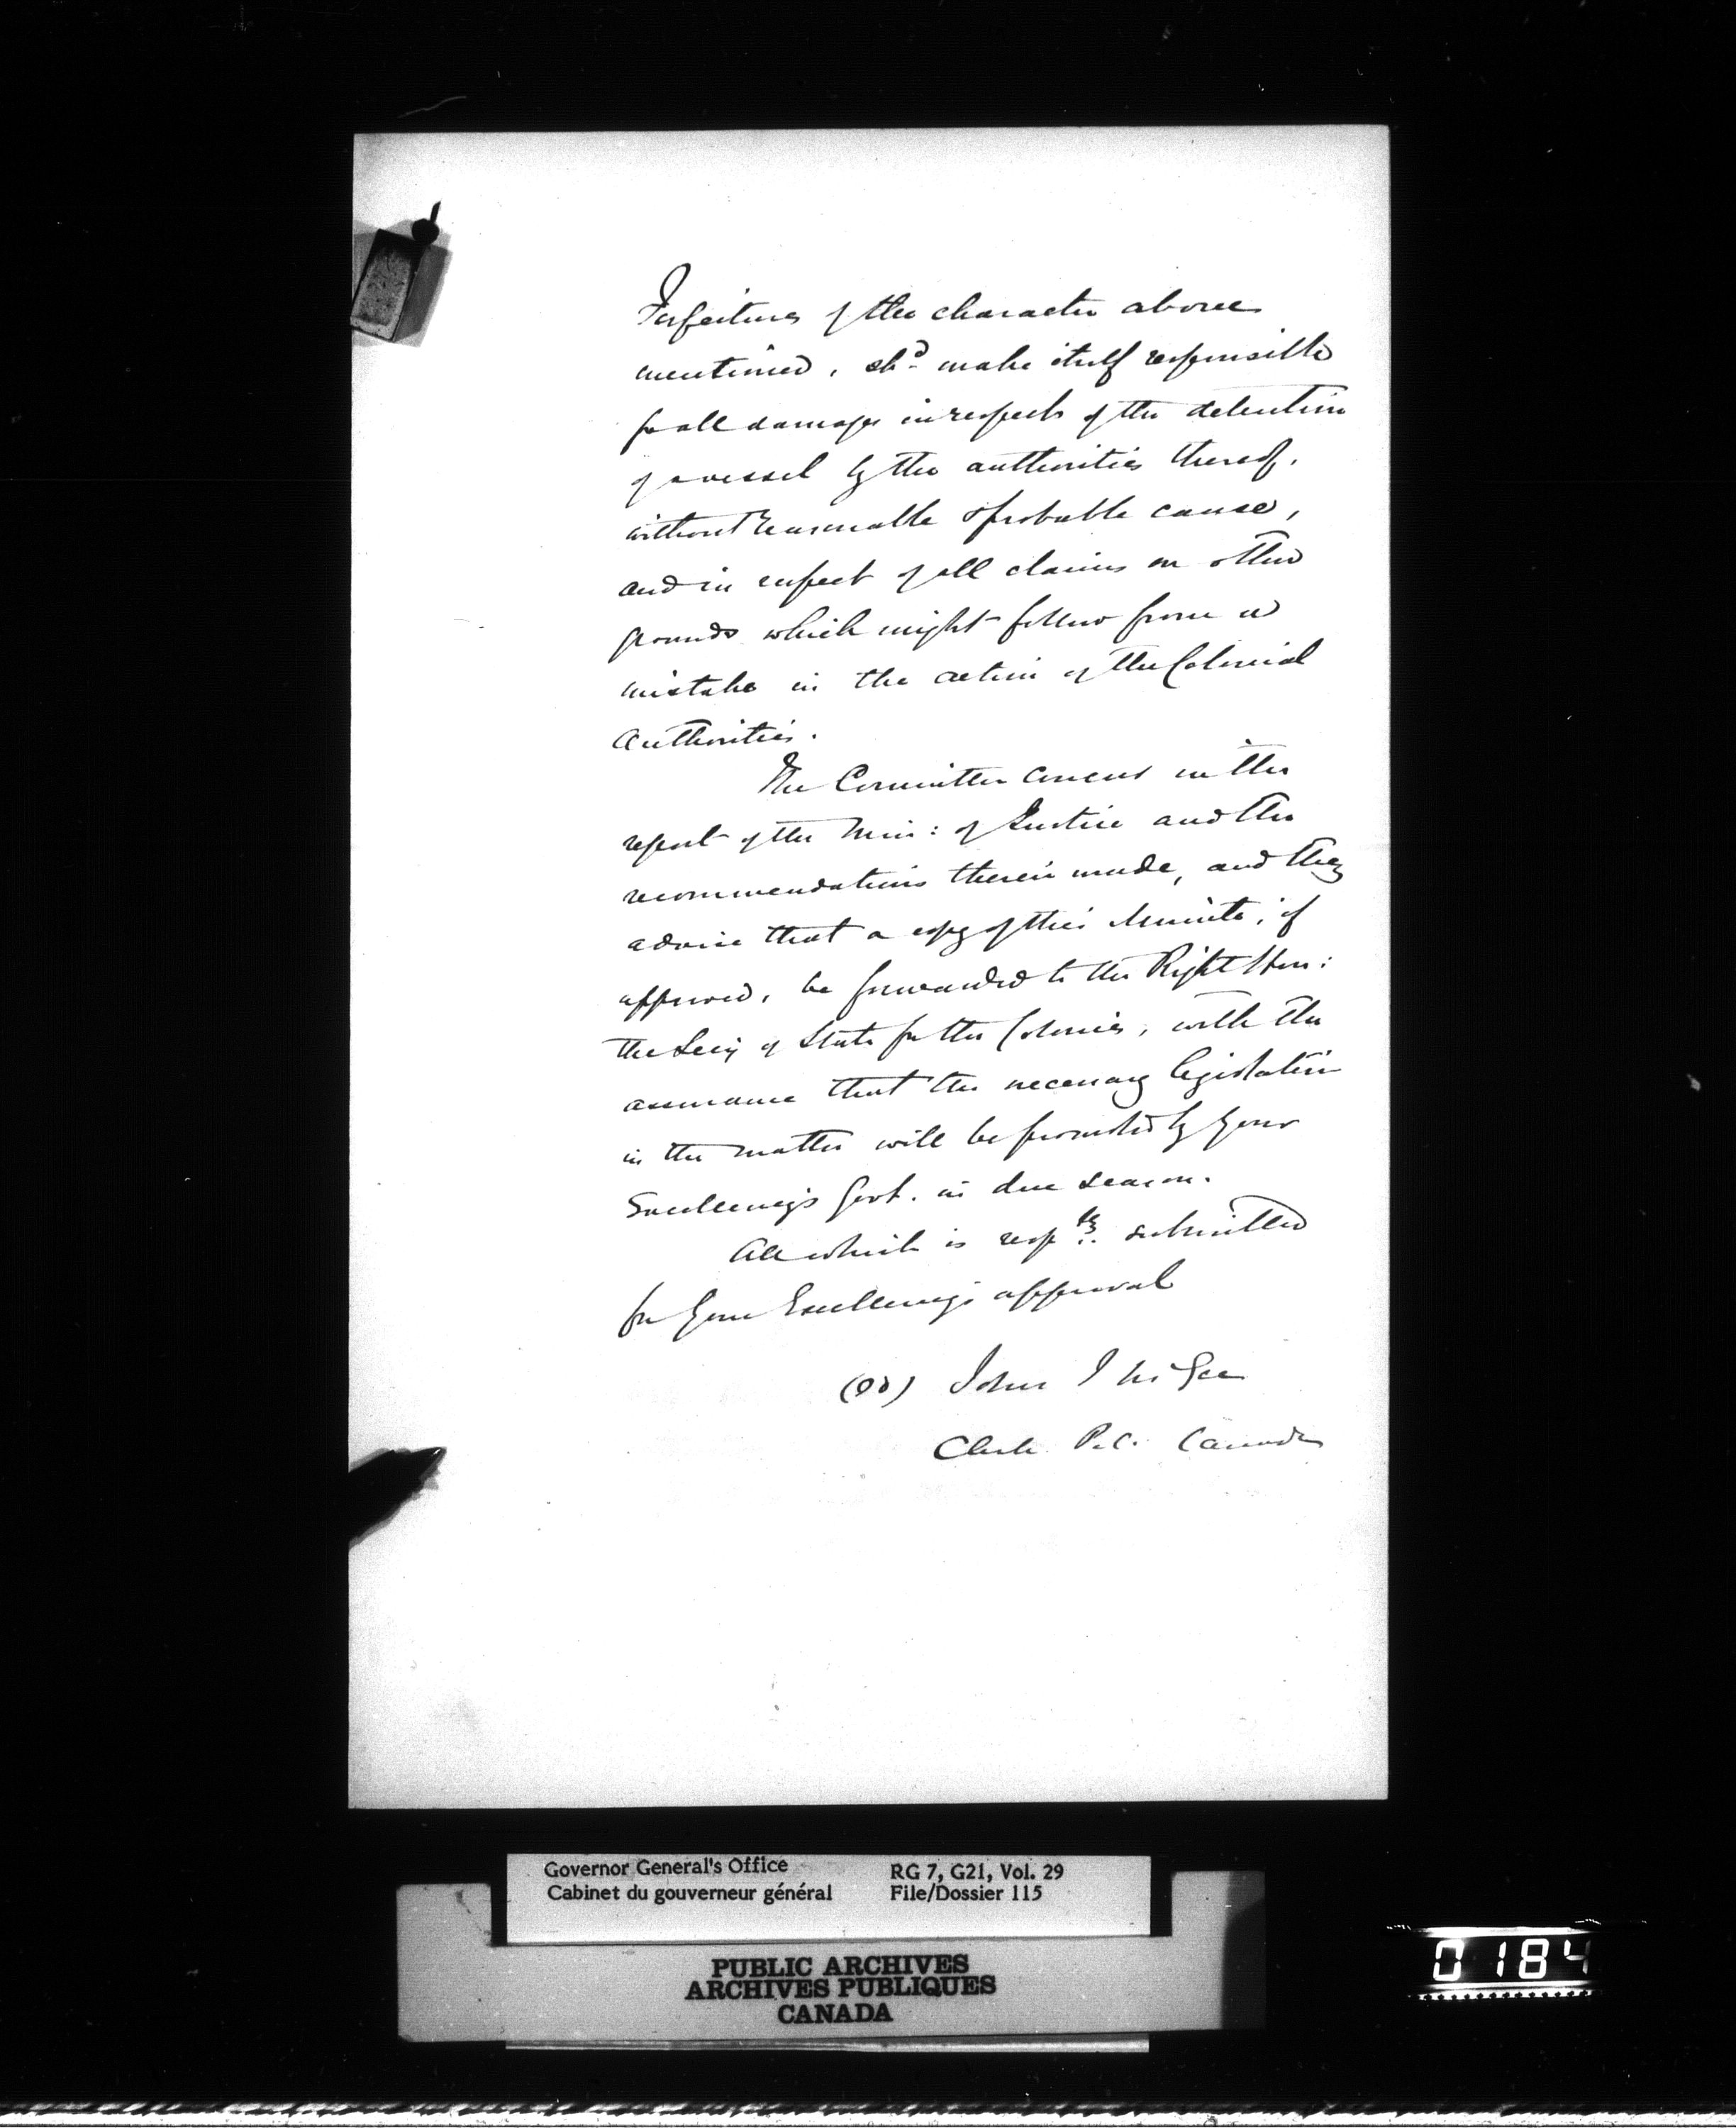 Forfeitures of the character above
mentioned, shd. make itself responsible
for all damages in respects of the detention
of a vessel by the authorities thereof,
without reasonable & probable cause,
and in respect of all claims on other
grounds which might follow from a
mistake in the action of the Colonial
Authorities.
The Committee concur in the
report of the Min: of Justice and the
recommendations therein made, and they
advise that a copy of this Minute, if
approved, be forwarded to the Right Hon:
the Secy of State for the Colonies, with the
assurance that the necessary legislation
in the matter will be promoted by Your
Excellency's Govt. in due season.
All which is resp.tly submitted
for Your Excellency's approval
(sd) John J McGee
Clerk P.C. Canada
Governor General's Office
Cabinet du gouverneur général
RG 7, G21, Vol. 29
File/Dossier 115
PUBLIC ARCHIVES
ARCHIVES PUBLIQUES
CANADA
0184